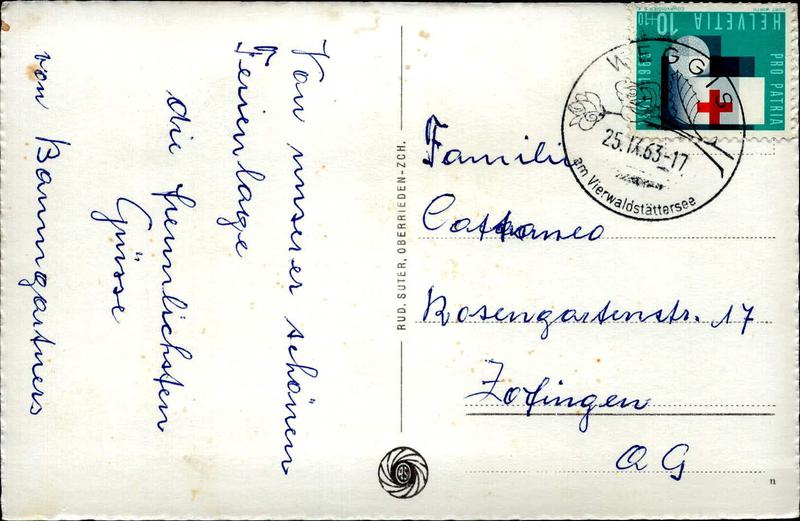 Von unserer schönen
Ferienlage
die freundlichsten
Grüsse
von Baumgartners
RUD. SUTER, OBERRIEDEN-ZCH.
HELVETIA
10+10
PRO PATRIA
WEGGIS
25.IX.63-17
am Vierwaldstättersee
Familie
Cattaneo
Rosengartenstr. 17
Zofingen
AG
n